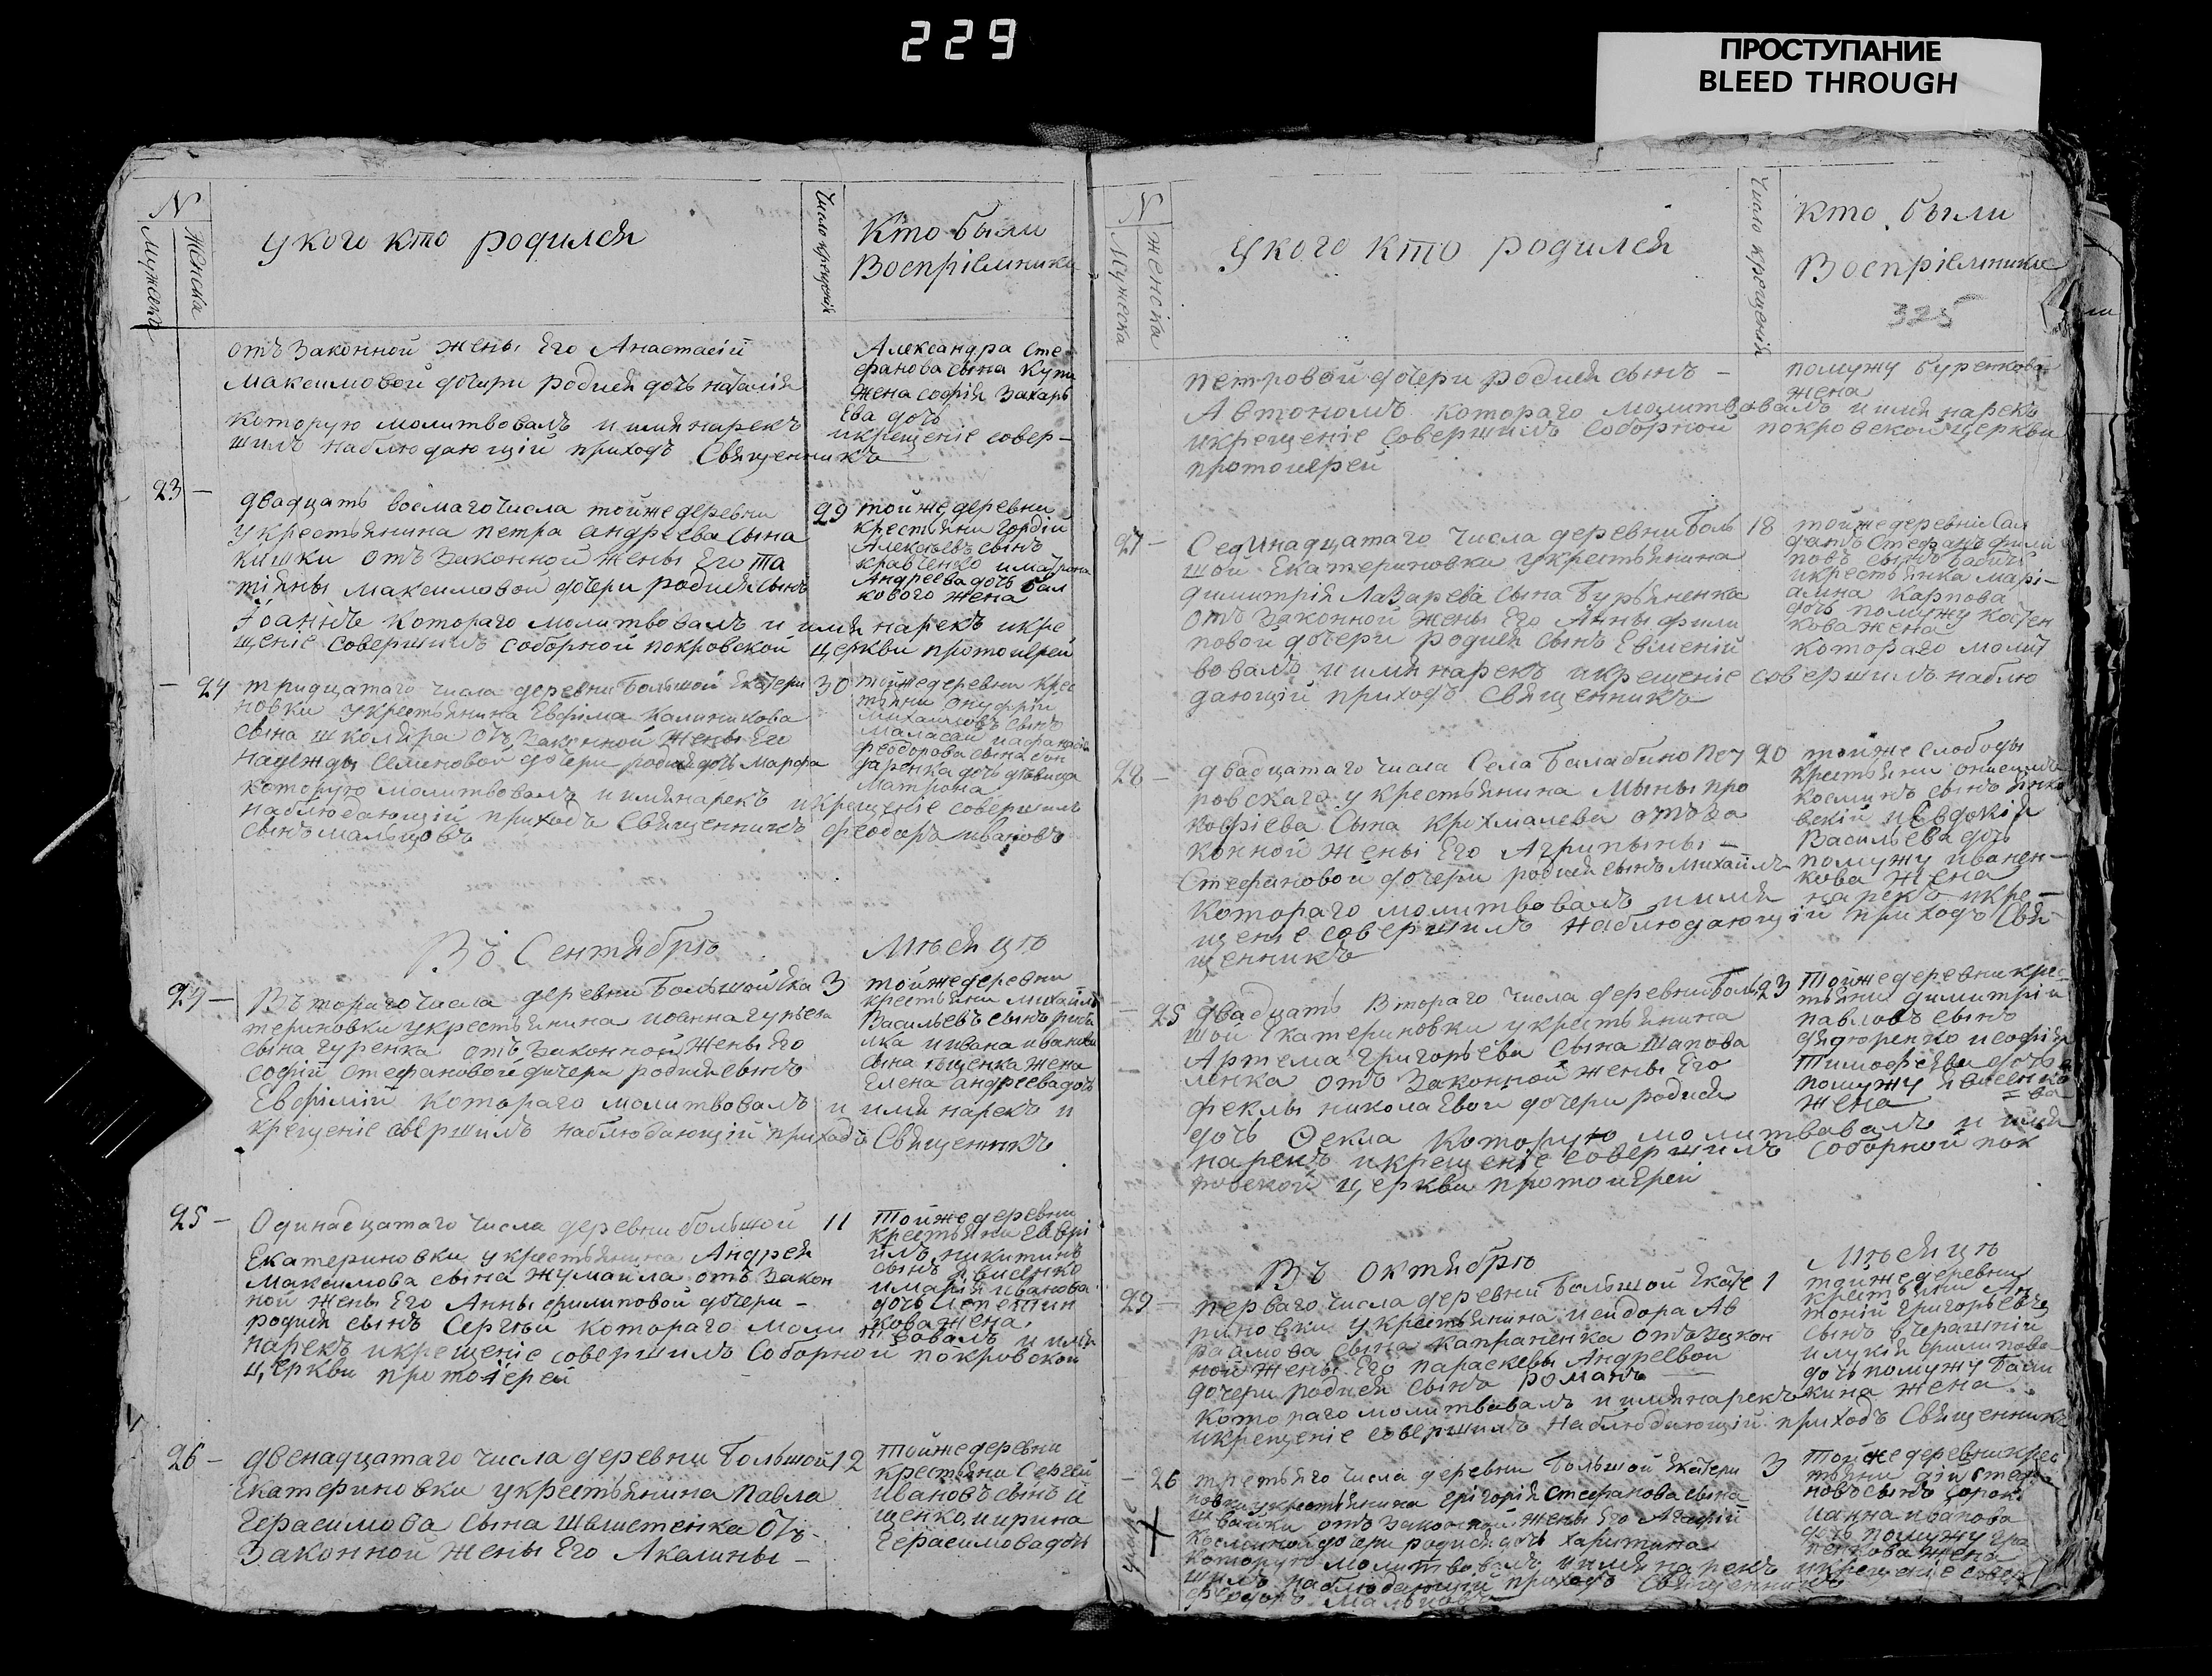 229
ПРОСТУПАНИЕ
BLEED THROUGH
N
Мужеска
Женска
у кого кто родился
Число крещенія
Кто были
Воспріемники
отъ законной жены его Анастасіи
Максимовой дочери родися дочь наталія
которую молитвовалъ и имя нарекъ
шилъ наблюдающій приходъ Священникъ
Александра Сте
фанова сына
жена софія Захарь
ева дочь
и крещеніе совер-
23 -
двадцать восмаго числа тойже деревни
у крестьянина петра андреева сына
кишки отъ законной жены его та
тіяны максимовой дочери родися сынъ
Іоаннъ котораго молитвовалъ и имя нарекъ и кре
щеніе совершилъ соборной покровской церкви протоіерей
29
тойже деревни
крестьяни гордій
Алексѣевъ сынъ
кравченко и
Андреева дочь
кового жена
- 24
тридцатаго числа деревни Большой Екатери
новки у крестьянина Евфима калиникова
сына школяра отъ законной жены его
надежды Семеновой дочери родися дочь марфа
которую молитвовалъ и имя нарекъ и крещеніе совершилъ
наблюдающій приходъ Священникъ феодоръ ивановъ
сынъ мальцовъ
30
тойже деревни крес
тьяни онуфрій
михайловъ сынъ
феодорова сына бон
даренка дочь девица
матрона
Въ Сентябрѣ
Мѣсяцѣ
24 -
Втораго числа деревни Большой Ека
териновки у крестьянина иоанна гурьева
сына гуренка отъ законной жены его
софіи стефановой дочери родися сынъ
Евфимій котораго молитвовалъ и имя нарекъ и
крещеніе совершилъ наблюдающій приходъ Священникъ
3
тойже деревни
крестьяни михайла
Васильевъ сынъ
ка и ивана иванова
сына жена
Елена андреева дочь
25 -
Одинадцатаго числа деревни большой
Екатериновки у крестьянина Андрея
максимова сына жумайла отъ закон
ной жены его Анны филиповой дочери -
родися сынъ Сергѣй котораго моли твовалъ и имя
нарекъ и крещеніе совершилъ Соборной покровской
церкви протоіерей
11
тойже деревни
крестьяни гаври
илъ никитинъ
сынъ
и марія иванова
дочь
кова жена
26 -
двенадцатаго числа деревни Большой
Екатериновки у крестьянина павла
Герасимова сына отъ
законной жены его Акилины -
12
тойже деревни
крестьяни Сергей
Ивановъ сынъ и
щенко и ирина
Герасимова дочь
N
Мужеска
Женска
у кого кто родился
Число крещенія
кто были
Воспріемники
325
петровой дочери родися сынъ -
Автономъ котораго молитвовалъ и имя нарекъ
и крещеніе совершилъ соборной покровской церкви
протоиерей
помужу
жена
27 -
Сединадцатаго числа деревни Боль
шой Екатериновки у крестьянина
димитрія Лазарева сына Бурьяненка
отъ законной жены его Анны фили
повой дочери родися сынъ Евменій
вовалъ и имя нарекъ и крещеніе совершилъ наблю
дающій приходъ Священникъ
18
тойже деревни Сал
датъ Стефанъ фили
повъ сынъ
и крестьянка марі-
амна карпова
дочь помужу костен
кова жена
котораго молит
28 -
двадцатаго числа Села Балабино пет
ровскаго у крестьянина Мины про
кофіева сына крохмалева отъ за
конной жены его Агрипины -
Стефановой дочери родися сынъ михаилъ
котораго молитвовалъ и имя нарекъ и кре-
щеніе совершилъ наблюдающій приходъ Свя
щенникъ
20
тойже слободы
крестьяни онисимъ
косминъ сынъ янко
вскій и Евдокія
Васильева дочь
помужу иванен-
кова жена
- 25
двадцать Втораго числа деревни Боль
шой Екатериновки у крестьянина
Артема григорьева сына Шапова
ленка отъ законной жены его
феклы николаевой дочери родися
дочь Ѳекла которую молитвовалъ и имя
нарекъ и крещеніе совершилъ соборной пок
ровской церкви протоиерей
23
тойже деревни крес
тьяни димитрій
павловъ сынъ
федоренко и софія
тимофеева дочь
помужу
жена
Въ Октябрѣ
Мѣсяцѣ
29 -
перваго числа деревни Большой Екате
риновки у крестьянина исидора Ав
рамова сына капраненка отъ закон
ной жены его параскевы Андреевой
дочери родися сынъ романъ
котораго молитвовалъ и имя нарекъ
и крещеніе совершилъ наблюдающій приходъ Священникъ
1
тойже деревни
крестьяни Ан
тоній григорьевъ
сынъ вчерашній
и лукія филипова
дочь помужу Баш
кина жена
- 26
третьяго числа деревни Большой Екатери
новки у крестьянина григорія стефанова сына
швайки отъ законной жены его Агафіи
косминой дочери родися дочь харитина
которую молитвовалъ и имя нарекъ и крещеніе совер
шилъ наблюдающій приходъ Священникъ
феодоръ мальцовъ
3
тойже деревни крес
тьяни
новъ сынъ
иоанна иванова
дочь помужу гра
ченкова жена